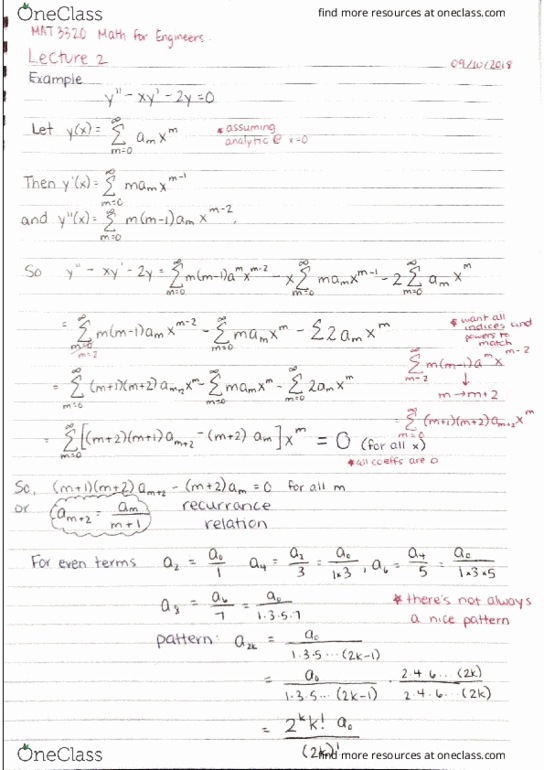 OneClass find more resources at oneclass.com
MAT 3320 Math for Engineers.
Lecture 2 09/10/2018
Example
y'' - xy' - 2y = 0
Let y(x) = ∞∑m=0 aₘxᵐ * assuming analytic @ x=0
Then y'(x) = ∞∑m=0 maₘxᵐ⁻¹
and y''(x) = ∞∑m=0 m(m-1)aₘxᵐ⁻².
So y'' - xy' - 2y = ∞∑m=0 m(m-1)aᵐxᵐ⁻² - x∞∑m=0 maₘxᵐ⁻¹ - 2∞∑m=0 aₘxᵐ
= ∞∑m=0 m=2 m(m-1)aₘxᵐ⁻² - ∞∑m=0 maₘxᵐ - ∑2aₘxᵐ
* want all indices and powers to match
∞∑m=2 m(m-1)aᵐxᵐ⁻²
↓
m→m+2
= ∞∑m=0 (m+1)(m+2)aₘ₊₂xᵐ
= ∞∑m=0 (m+1)(m+2)aₘ₊₂xᵐ - ∞∑m=0 maₘxᵐ - ∞∑m=0 2aₘxᵐ
= ∞∑m=0 [(m+2)(m+1)aₘ₊₂ - (m+2)aₘ]xᵐ = 0 (for all x)
* all coeffs are 0
So, (m+1)(m+2)aₘ₊₂ - (m+2)aₘ = 0 for all m
or aₘ₊₂ = aₘ/(m+1) recurrance
relation
For even terms a₂ = a₀/1 a₄ = a₂/3 = a₀/(1×3), a₆ = a₄/5 = a₀/(1×3×5)
a₈ = a₆/7 = a₀/(1·3·5·7) * there's not always
a nice pattern
pattern: a₂ₖ = a₀/(1·3·5···(2k-1))
= a₀/(1·3·5···(2k-1)) · (2·4·6...(2k))/(2·4·6...(2k))
= 2ᵏk! a₀/(2k)!
OneClass find more resources at oneclass.com